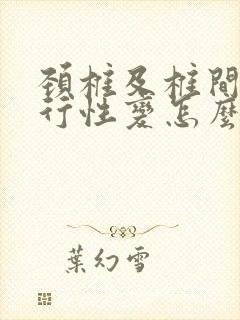 頸椎及椎間
行性變怎麼
葉幻雪